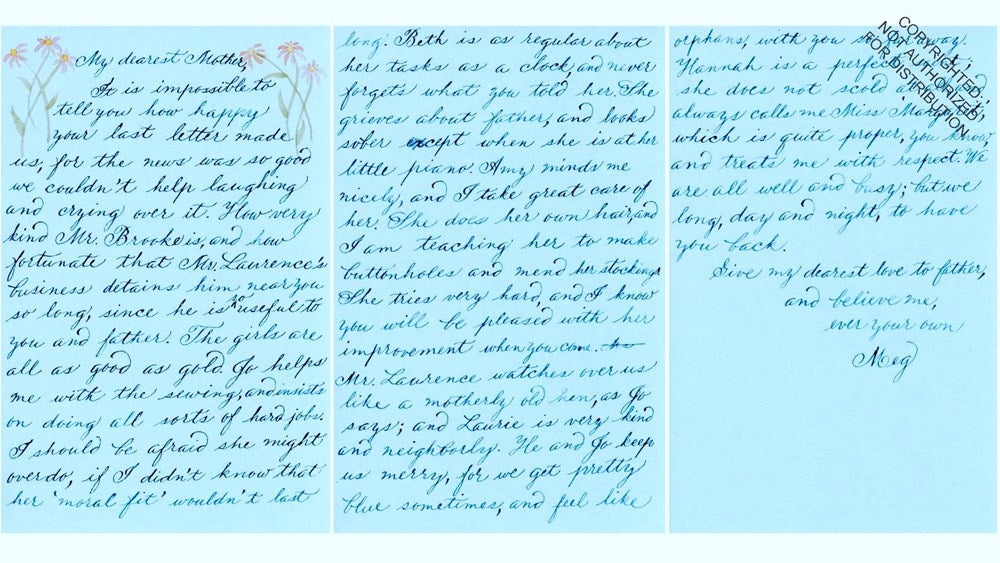 My dearest Mother,
It is impossible to
tell you how happy
your last letter made
us, for the news was so good
we couldn't help laughing
and crying over it. How very
kind Mr. Brooke is, and how
fortunate that Mr. Laurence's
business detains him near you
so long, since he is so useful to
you and father. The girls are
all as good as gold. Jo helps
me with the sewing, and insists
on doing all sorts of hard jobs.
I should be afraid she might
overdo, if I didn't know that
her 'moral fit' wouldn't last
long. Beth is as regular about
her tasks as a clock, and never
forgets what you told her. She
grieves about father, and looks
sober except when she is at her
little piano. Amy minds me
nicely, and I take great care of
her. She does her own hair, and
I am teaching her to make
buttonholes and mend her stockings.
She tries very hard, and I know
you will be pleased with her
improvement when you come.
Mr. Laurence watches over us
like a motherly old hen, as Jo
says; and Laurie is very kind
and neighborly. He and Jo keep
us merry, for we get pretty
blue sometimes, and feel like
orphans, with you away.
Hannah is a
she does not scold
always calls me Miss
which is quite proper, you know,
and treats me with respect. We
are all well and busy; but we
long, day and night, to have
you back.
Give my dearest love to father,
and believe me,
ever your own
Meg
COPYRIGHTED,
NOT AUTHORIZED
FOR DISTRIBUTION